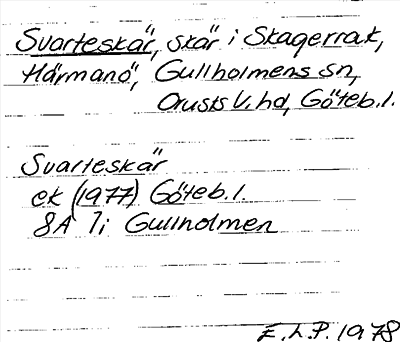 Svarteskär, skär i Skagerrak,
Härmanö, Gullholmens sn,
Orusts V. hd, Göteb. l.
Svarteskär
ek (1977) Göteb. l.
8A 7i Gullholmen
E.L.P. 1978